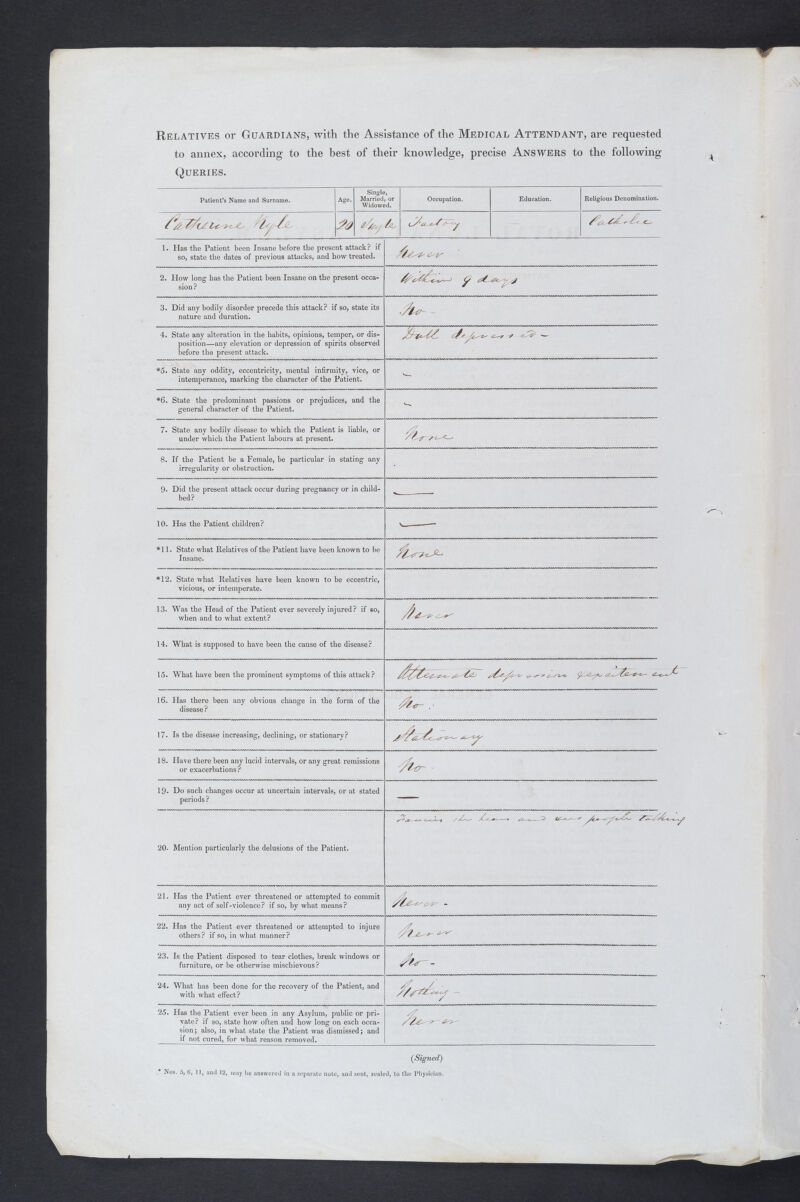 RELATIVES or GUARDIANS, with the Assistance of the MEDICAL ATTENDANT, are requested
to annex, according to the best of their knowledge, precise ANSWERS to the following
QUERIES.
Patient's Name and Surname. Age. Single, Married, or Widowed. Occupation. Education. Religious Denomination.
Catherine Kyle 20 Single Factory — Catholic
1. Has the Patient been Insane before the present attack? if
so, state the dates of previous attacks, and how treated.
Never
2. How long has the Patient been Insane on the present occa-
sion?
Within 9 days
3. Did any bodily disorder precede this attack? if so, state its
nature and duration.
No -
4. State any alteration in the habits, opinions, temper, or dis-
position—any elevation or depression of spirits observed
before the present attack.
Dull depressed -
*5. State any oddity, eccentricity, mental infirmity, vice, or
intemperance, marking the character of the Patient.
-
*6. State the predominant passions or prejudices, and the
general character of the Patient.
-
7. State any bodily disease to which the Patient is liable, or
under which the Patient labours at present.
None
8. If the Patient be a Female, be particular in stating any
irregularity or obstruction.
9. Did the present attack occur during pregnancy or in child-
bed?
—
10. Has the Patient children?
—
*11. State what Relatives of the Patient have been known to be
Insane.
None
*12. State what Relatives have been known to be eccentric,
vicious, or intemperate.
13. Was the Head of the Patient ever severely injured? if so,
when and to what extent?
Never
14. What is supposed to have been the cause of the disease?
15. What have been the prominent symptoms of this attack?
Alternate depression & excitement
16. Has there been any obvious change in the form of the
disease?
No.
17. Is the disease increasing, declining, or stationary?
Stationary
18. Have there been any lucid intervals, or any great remissions
or exacerbations?
No -
19. Do such changes occur at uncertain intervals, or at stated
periods?
—
20. Mention particularly the delusions of the Patient.
Fancies she hears and sees people talking
21. Has the Patient ever threatened or attempted to commit
any act of self-violence? if so, by what means?
Never -
22. Has the Patient ever threatened or attempted to injure
others? if so, in what manner?
Never
23. Is the Patient disposed to tear clothes, break windows or
furniture, or be otherwise mischievous?
No -
24. What has been done for the recovery of the Patient, and
with what effect?
Nothing -
25. Has the Patient ever been in any Asylum, public or pri-
vate? if so, state how often and how long on each occa-
sion; also, in what state the Patient was dismissed; and
if not cured, for what reason removed.
Never
(Signed)
* Nos. 5, 6, 11, and 12, may be answered in a separate note, and sent, sealed, to the Physician.